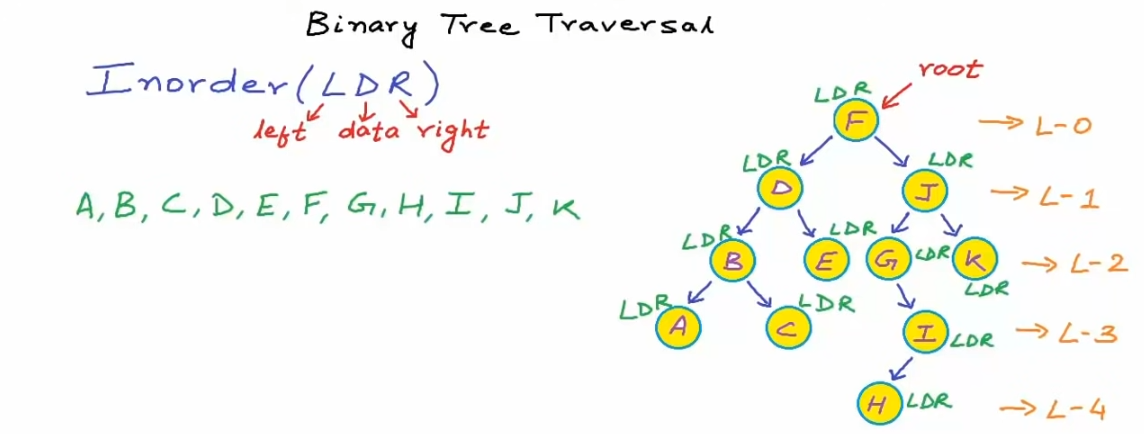 Binary Tree Traversal
Inorder(LDR)
left data right
A, B, C, D, E, F, G, H, I, J, K
root
LDR
F
→ L-0
LDR LDR
D J
→ L-1
LDR LDR
B E G LDR K
→ L-2
LDR
LDR LDR
A C I LDR
→ L-3
H LDR
→ L-4